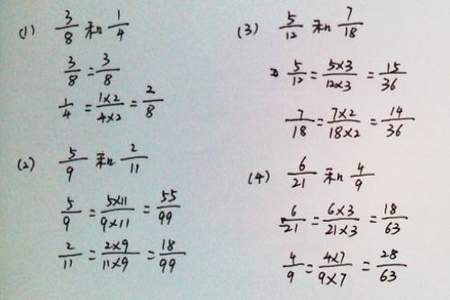 (1) 3/8 和 1/4
3/8 = 3/8
1/4 = 1×2/4×2 = 2/8
(2) 5/9 和 2/11
5/9 = 5×11/9×11 = 55/99
2/11 = 2×9/11×9 = 18/99
(3) 5/12 和 7/18
5/12 = 5×3/12×3 = 15/36
7/18 = 7×2/18×2 = 14/36
(4) 6/21 和 4/9
6/21 = 6×3/21×3 = 18/63
4/9 = 4×7/9×7 = 28/63